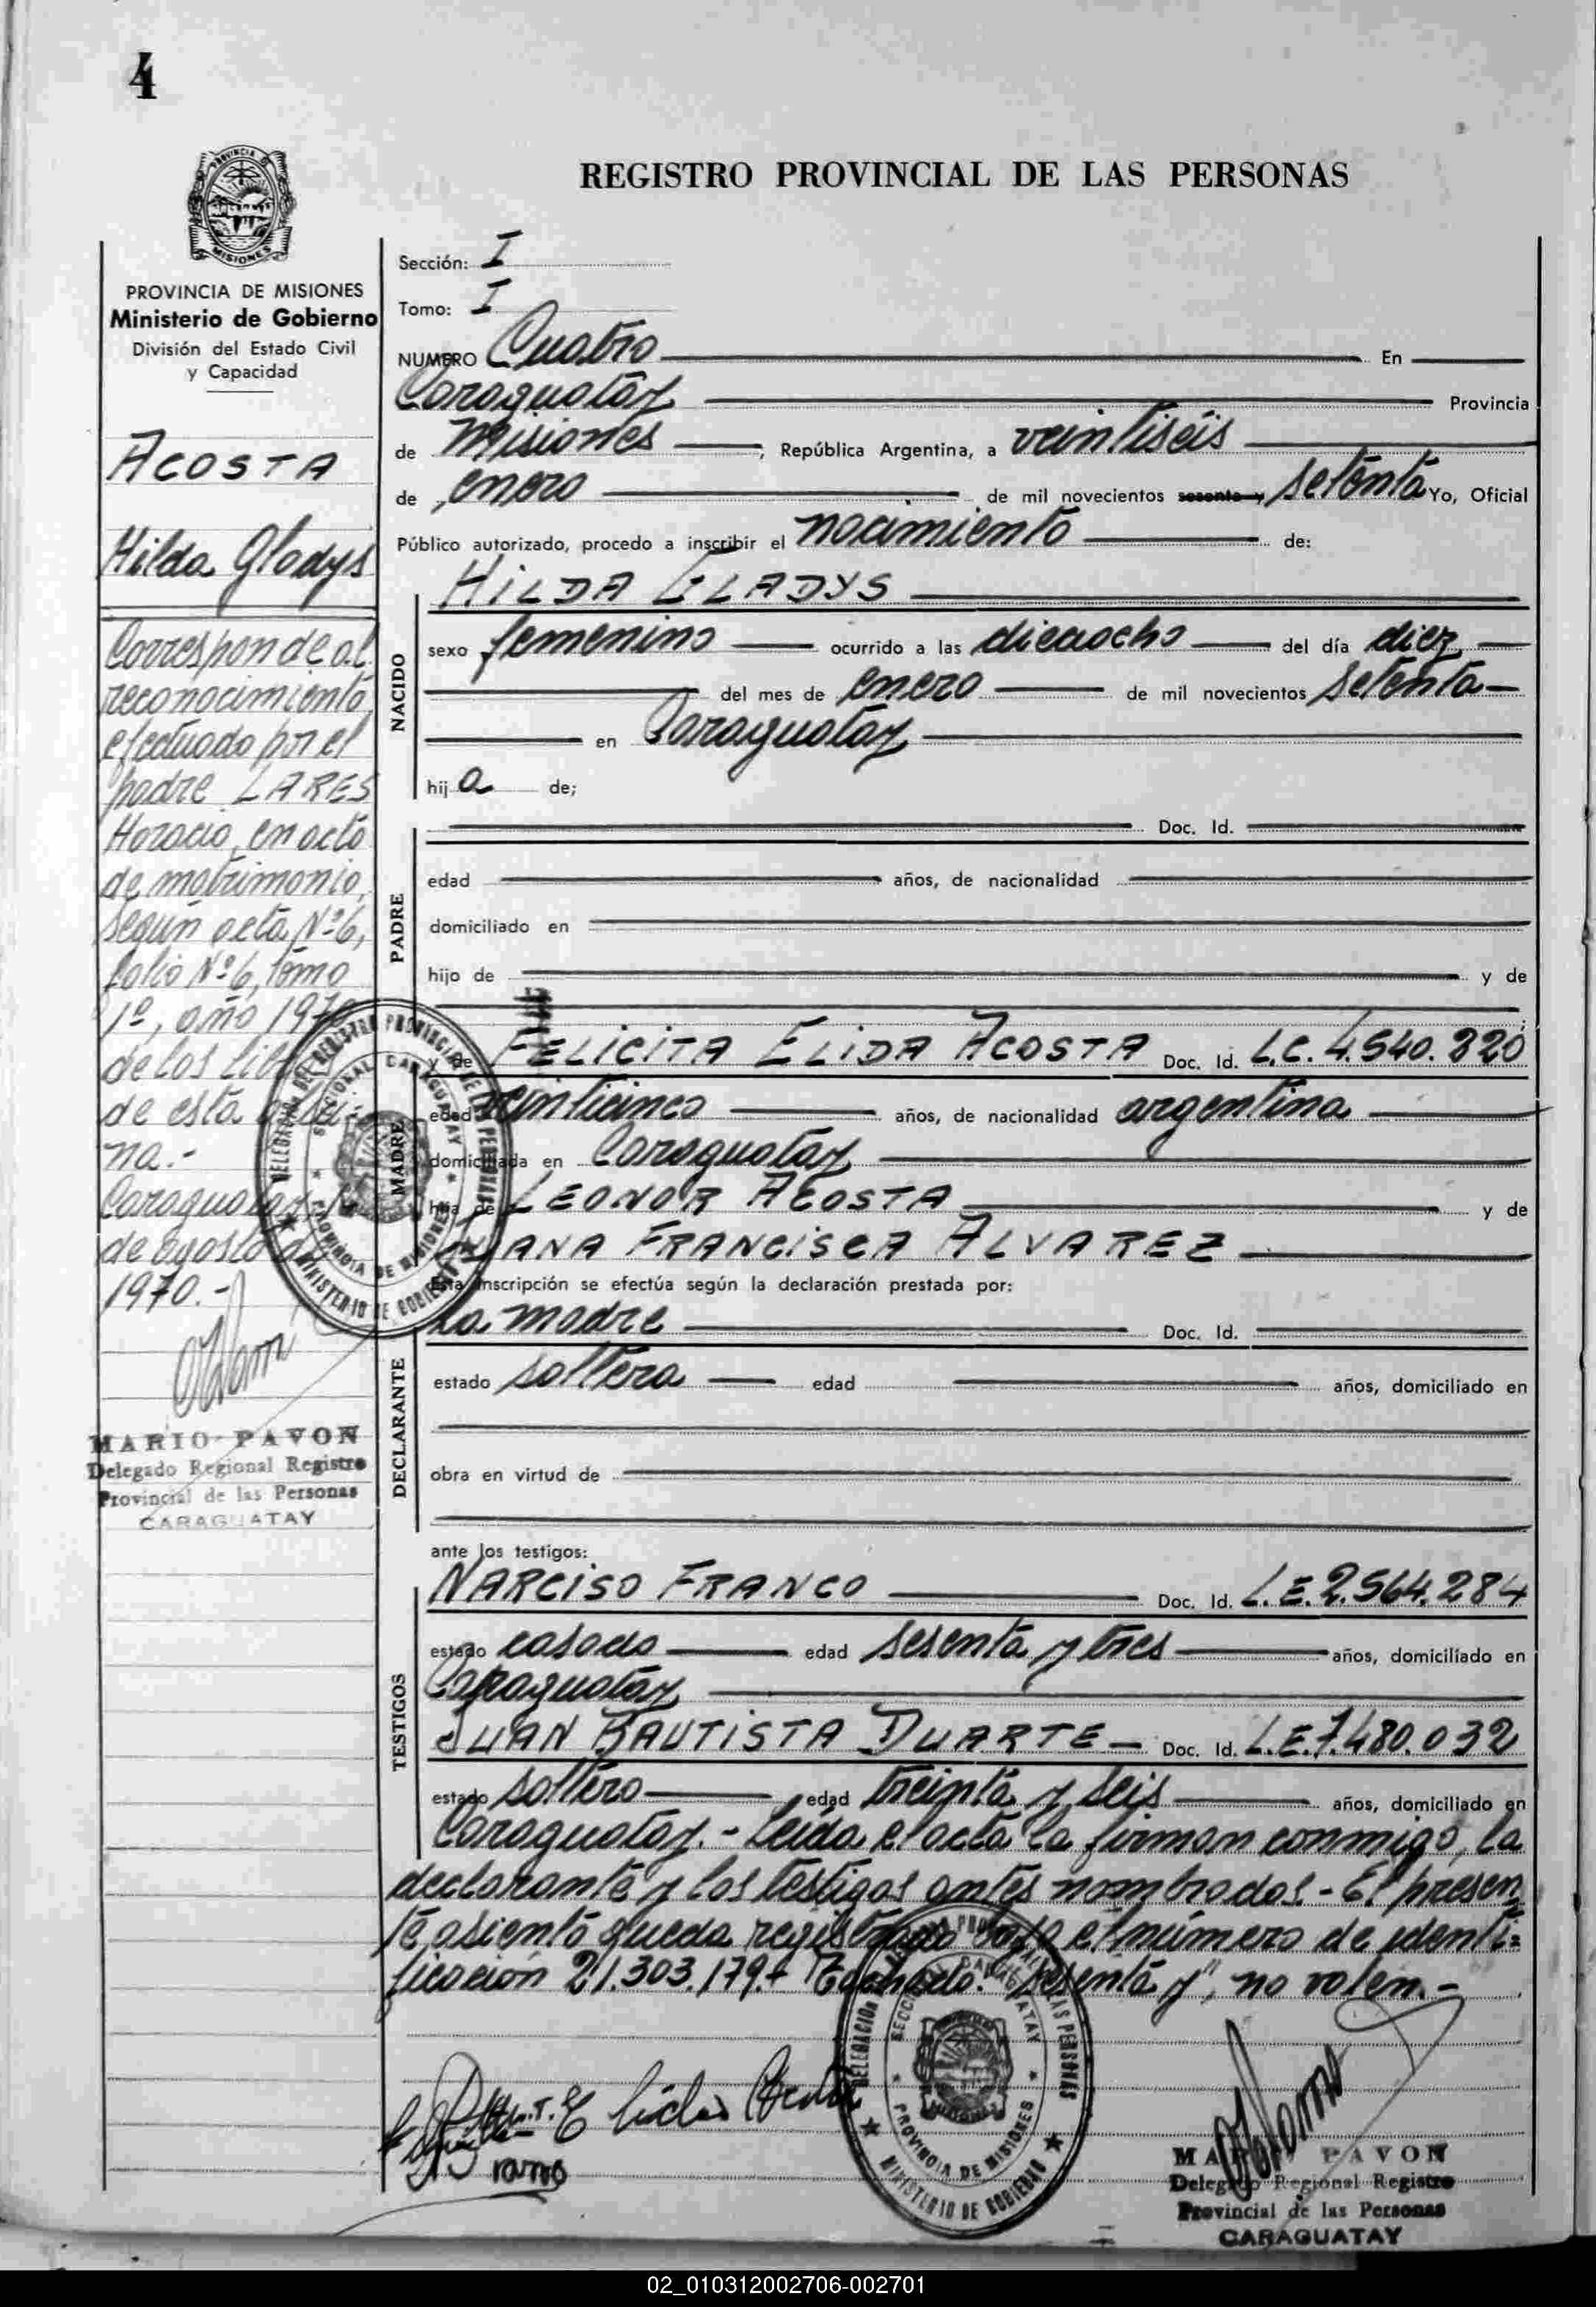 4
REGISTRO PROVINCIAL DE LAS PERSONAS
PROVINCIA
MISIONES
PROVINCIA DE MISIONES
Ministerio de Gobierno
División del Estado Civil
y Capacidad
ACOSTA
Hilda Gladys
Corresponde al
reconocimiento
efectuado por el
padre LARES
Horacio, en acto
de matrimonio,
según acta Nº 6,
folio Nº 6, tomo
1º, año 1970
de los
de esta
na.-
Caraguatay
de agosto de
1970.-
MARIO PAVON
Delegado Regional Registro
Provincial de las Personas
CARAGUATAY
Sección: I
Tomo: I
NUMERO Cuatro En
Caraguatay Provincia
de Misiones, República Argentina, a veintiséis
de enero de mil novecientos sesenta y setenta Yo, Oficial
Público autorizado, procedo a inscribir el nacimiento de:
HILDA GLADYS
NACIDO
sexo femenino ocurrido a las dieciocho del día diez
del mes de enero de mil novecientos setenta
en Caraguatay
hij a de;
PADRE
Doc. Id.
edad años, de nacionalidad
domiciliado en
hijo de y de
MADRE
y de FELICITA ELIDA ACOSTA Doc. Id. L.C. 4.540.820
edad veinticinco años, de nacionalidad argentina
domiciliada en Caraguatay
hija de LEONOR ACOSTA y de
JUANA FRANCISCA ALVAREZ
Esta inscripción se efectúa según la declaración prestada por:
DECLARANTE
La madre Doc. Id.
estado soltera edad años, domiciliado en
obra en virtud de
ante los testigos:
TESTIGOS
NARCISO FRANCO Doc. Id. L.E. 2.564.284
estado casado edad sesenta y tres años, domiciliado en
Caraguatay
JUAN BAUTISTA DUARTE - Doc. Id. L.E. 7.480.032
estado soltero edad treinta y seis años, domiciliado en
Caraguatay.- Leída el acta la firman conmigo, la
declarante y los testigos antes nombrados.- El presen
te asiento queda registrado bajo el número de identi=
ficación 21.303.179.- Tachado: "sesenta y", no valen.-
DELEGACION DEL REGISTRO PROVINCIAL DE LAS PERSONAS
SECCIONAL CARAGUATAY
PROVINCIA DE MISIONES
MINISTERIO DE GOBIERNO
MARIO PAVON
Delegado Regional Registro
Provincial de las Personas
CARAGUATAY
02_010312002706-002701